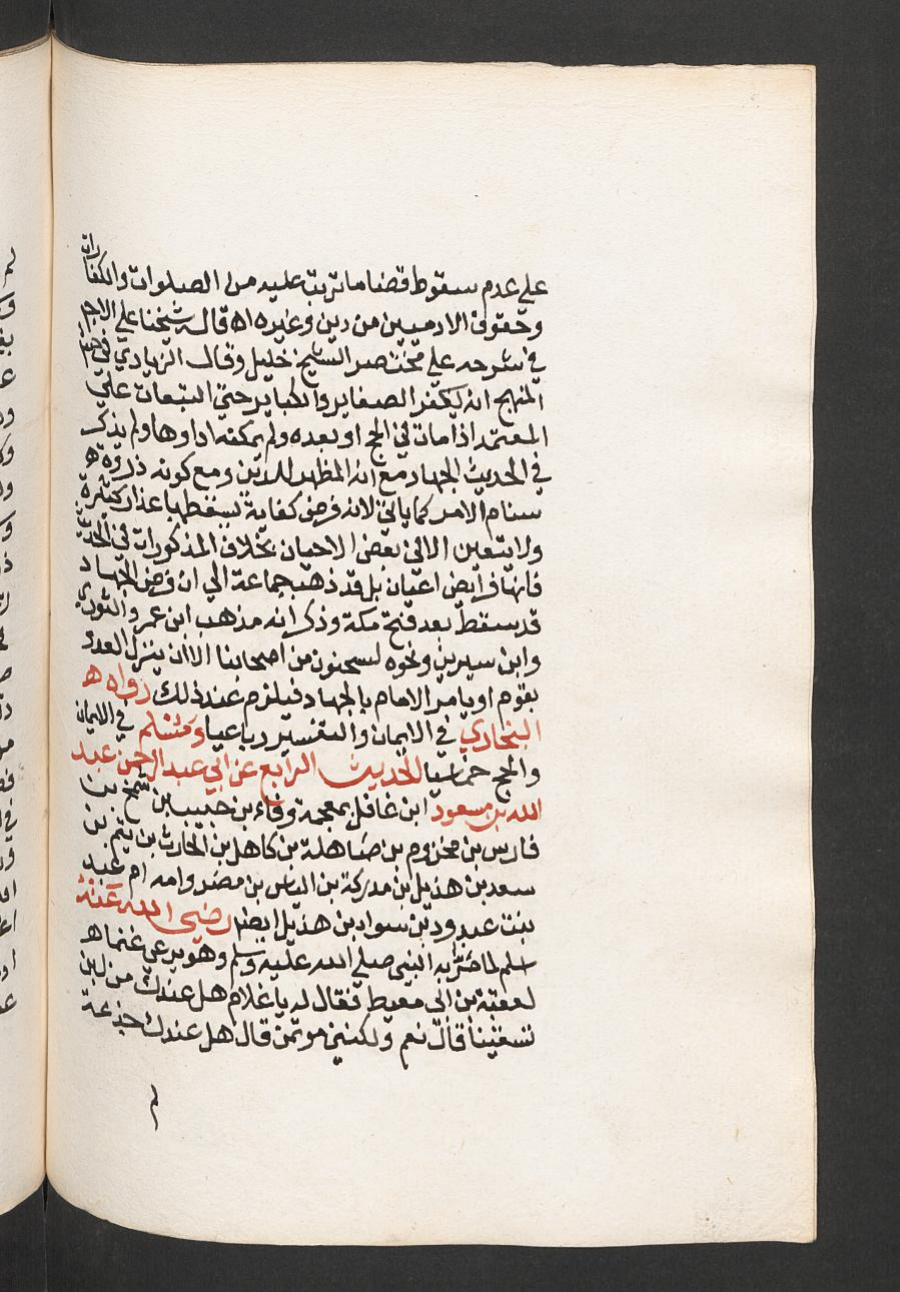 علي عدم سقوط قضا ما ترتب عليه من الصلوات والكفارات
وحقوق الادميين من دين وغيره اه قاله شيخنا علي الاجهـ
في شرحه علي مختصر الشيخ خليل وقال الزيادي في حاشية
المنهج انه يكفر الصغاير والكباير حتي التبعات علي
المعتمد اذا مات في الحج او بعده ولم يمكنه اداوها ولم يذكر
في الحديث الجهاد مع انه المظهر للدين ومع كونه ذروة ه
سنام الامر كما ياتي لانه فرض كفاية يسقطها عذار كثيرة
ولا يتعين الا في بعض الاحيان بخلاف المذكورات في الحديث
فانها فرايض اعيان بل قد ذهب جماعة الي ان فرض الجهاد
قد سقط بعد فتح مكة وذكر انه مذهب ابن عمر والثوري
وابن سيرين ونحوه لسحنون من اصحابنا الا ان ينزل العدو
بقوم او يامر الامام بالجهاد فيلزم عند ذلك رواه ه
البخاري في الايمان والتفسير رباعيا ومسلم في الايمان
والحج خماسيا الحديث الرابع عن ابي عبد الرحمن عبد
الله بن مسعود ابن غافل بمعجمة وفاء بن حبيب بن شمخ بن
فارس بن مخزوم بن صاهلة بن كاهل بن الحارث بن يتم بن
سعد بن هذيل بن مدركة بن الياس بن مضر وامه ام عبد
بنت عبدود بن سواد بن هذيل ايضا رضي الله عنه
اسلم لما مر به النبي صلي الله عليه وسلم وهو يرعي غنما ه
لعقبة بن ابي معيط فقال له يا غلام هل عندك من لبن
تسقينا قال نعم ولكنني موتمن قال هل عندك جذعة